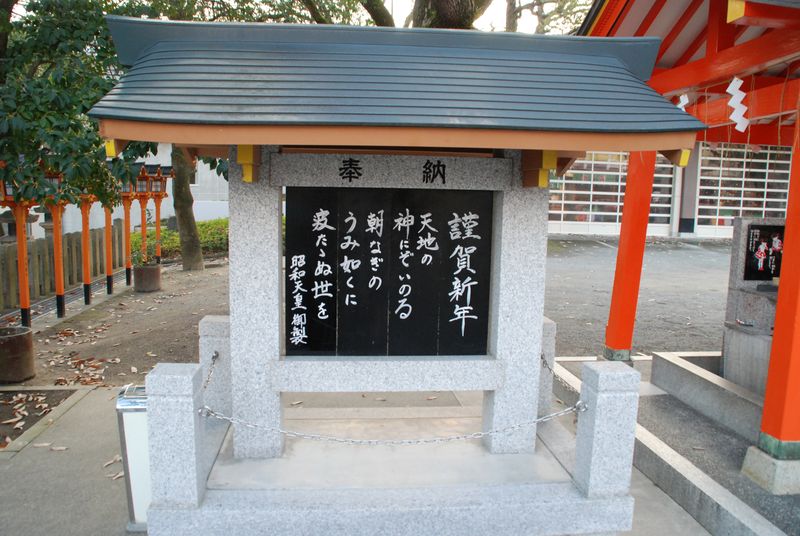 奉納
謹賀新年
天地の
神にぞいのる
朝なぎの
うみ如くに
波たゝぬ世を
昭和天皇御製